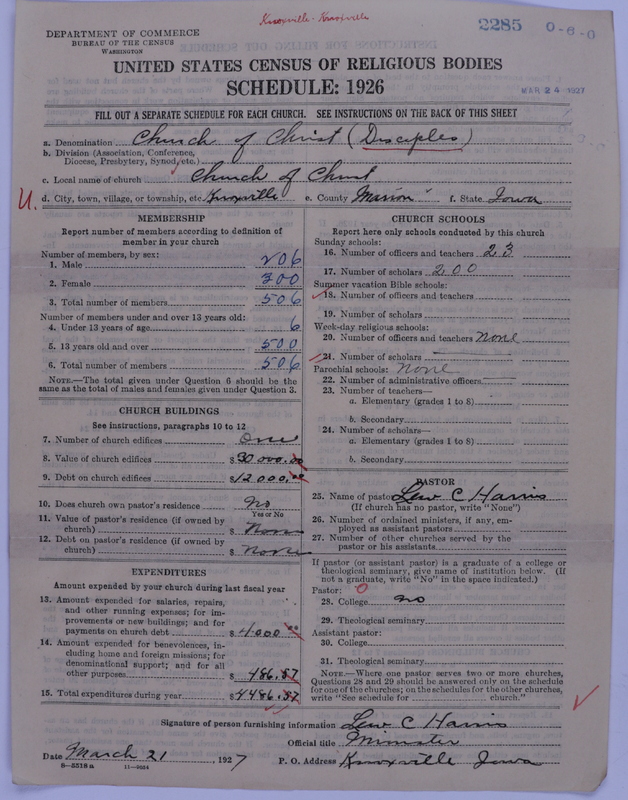 Knoxville-Knoxville
2285 0-6-0
DEPARTMENT OF COMMERCE
BUREAU OF THE CENSUS
WASHINGTON
UNITED STATES CENSUS OF RELIGIOUS BODIES
SCHEDULE: 1926
MAR 24 1927
FILL OUT A SEPARATE SCHEDULE FOR EACH CHURCH. SEE INSTRUCTIONS ON THE BACK OF THIS SHEET
a. Denomination Church of Christ (Disciples)
b. Division (Association, Conference,
Diocese, Presbytery, Synod, etc.)
c. Local name of church Church of Christ
U. d. City, town, village, or township, etc. Knoxville e. County Marion f. State Iowa
MEMBERSHIP
Report number of members according to definition of
member in your church
Number of members, by sex:
1. Male 206
2. Female 300
3. Total number of members 506
Number of members under and over 13 years old:
4. Under 13 years of age 6
5. 13 years old and over 500
6. Total number of members 506
NOTE.—The total given under Question 6 should be
same as the total of males and females given under Question 3.
CHURCH BUILDINGS
See instructions, paragraphs 10 to 12
7. Number of church edifices One
8. Value of church edifices $30000.00
9. Debt on church edifices $12000.00
10. Does church own pastor's residence? No
Yes or No
11. Value of pastor's residence (if owned by
church) $ None
12. Debt on pastor's residence (if owned by
church) $ None
EXPENDITURES
Amount expended by your church during last fiscal year
13. Amount expended for salaries, repairs,
and other running expenses; for im-
provements or new buildings; and for
payments on church debt $4000 00
14. Amount expended for benevolences, in-
cluding home and foreign missions; for
denominational support; and for all
other purposes $486.57
15. Total expenditures during year $4486.57
CHURCH SCHOOLS
Report here only schools conducted by this church
Sunday schools:
16. Number of officers and teachers 23
17. Number of scholars 200
Summer vacation Bible schools:
18. Number of officers and teachers
19. Number of scholars
Week-day religious schools:
20. Number of officers and teachers None
21. Number of scholars
Parochial schools: None
22. Number of administrative officers
23. Number of teachers—
a. Elementary (grades 1 to 8)
b. Secondary
24. Number of scholars—
a. Elementary (grades 1 to 8)
b. Secondary
PASTOR
25. Name of pastor Lew C Harris
(If church has no pastor, write "None")
26. Number of ordained ministers, if any, em-
ployed as assistant pastors
27. Number of other churches served by the
pastor or his assistants
If pastor (or assistant pastor) is a graduate of a college or
theological seminary, give name of institution below. (If
not a graduate, write "No" in the space indicated.)
Pastor: 0
28. College no
29. Theological seminary
Assistant pastor:
30. College
31. Theological seminary
NOTE.—Where one pastor serves two or more churches,
Questions 28 and 29 should be answered only on the schedule
for one of the churches; on the schedules for the other churches,
write "See schedule for church."
Signature of person furnishing information Lew C Harris
Official title Minister
Date March 21, 1927 P. O. Address Knoxville Iowa
8—5518a 11—9024